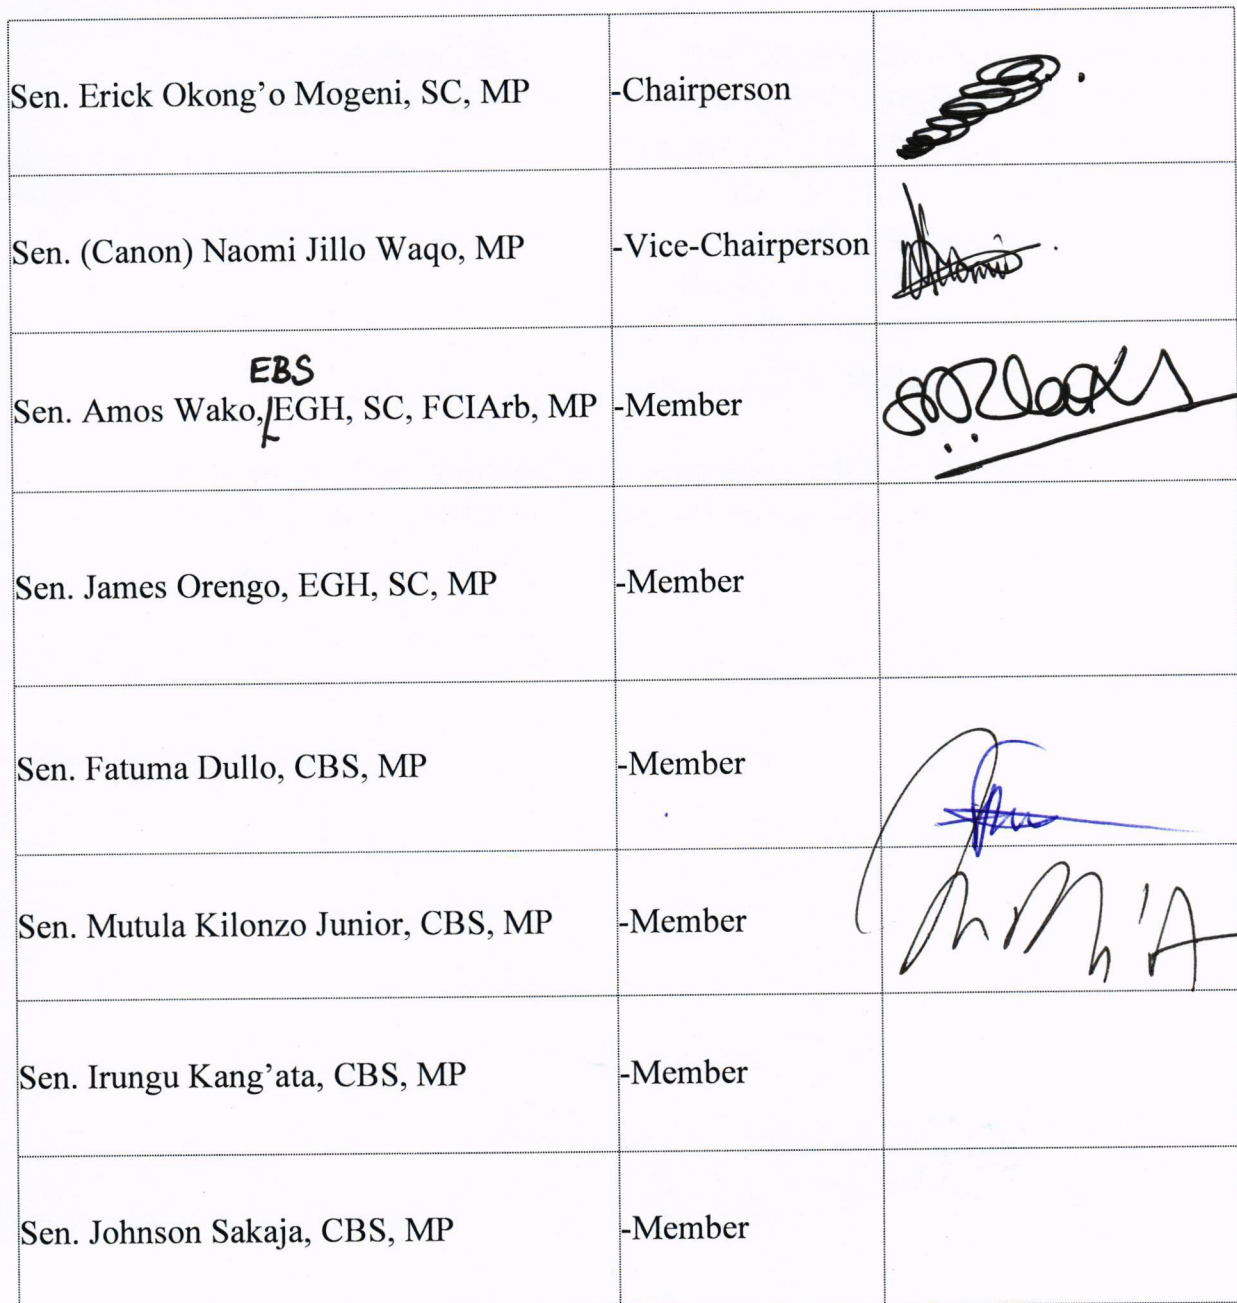 Sen. Erick Okong’o Mogeni, SC, MP -Chairperson
Sen. (Canon) Naomi Jillo Waqo, MP -Vice-Chairperson
EBS
Sen. Amos Wako, EGH, SC, FCIArb, MP -Member
Sen. James Orengo, EGH, SC, MP -Member
Sen. Fatuma Dullo, CBS, MP -Member
Sen. Mutula Kilonzo Junior, CBS, MP -Member
Sen. Irungu Kang’ata, CBS, MP -Member
Sen. Johnson Sakaja, CBS, MP -Member